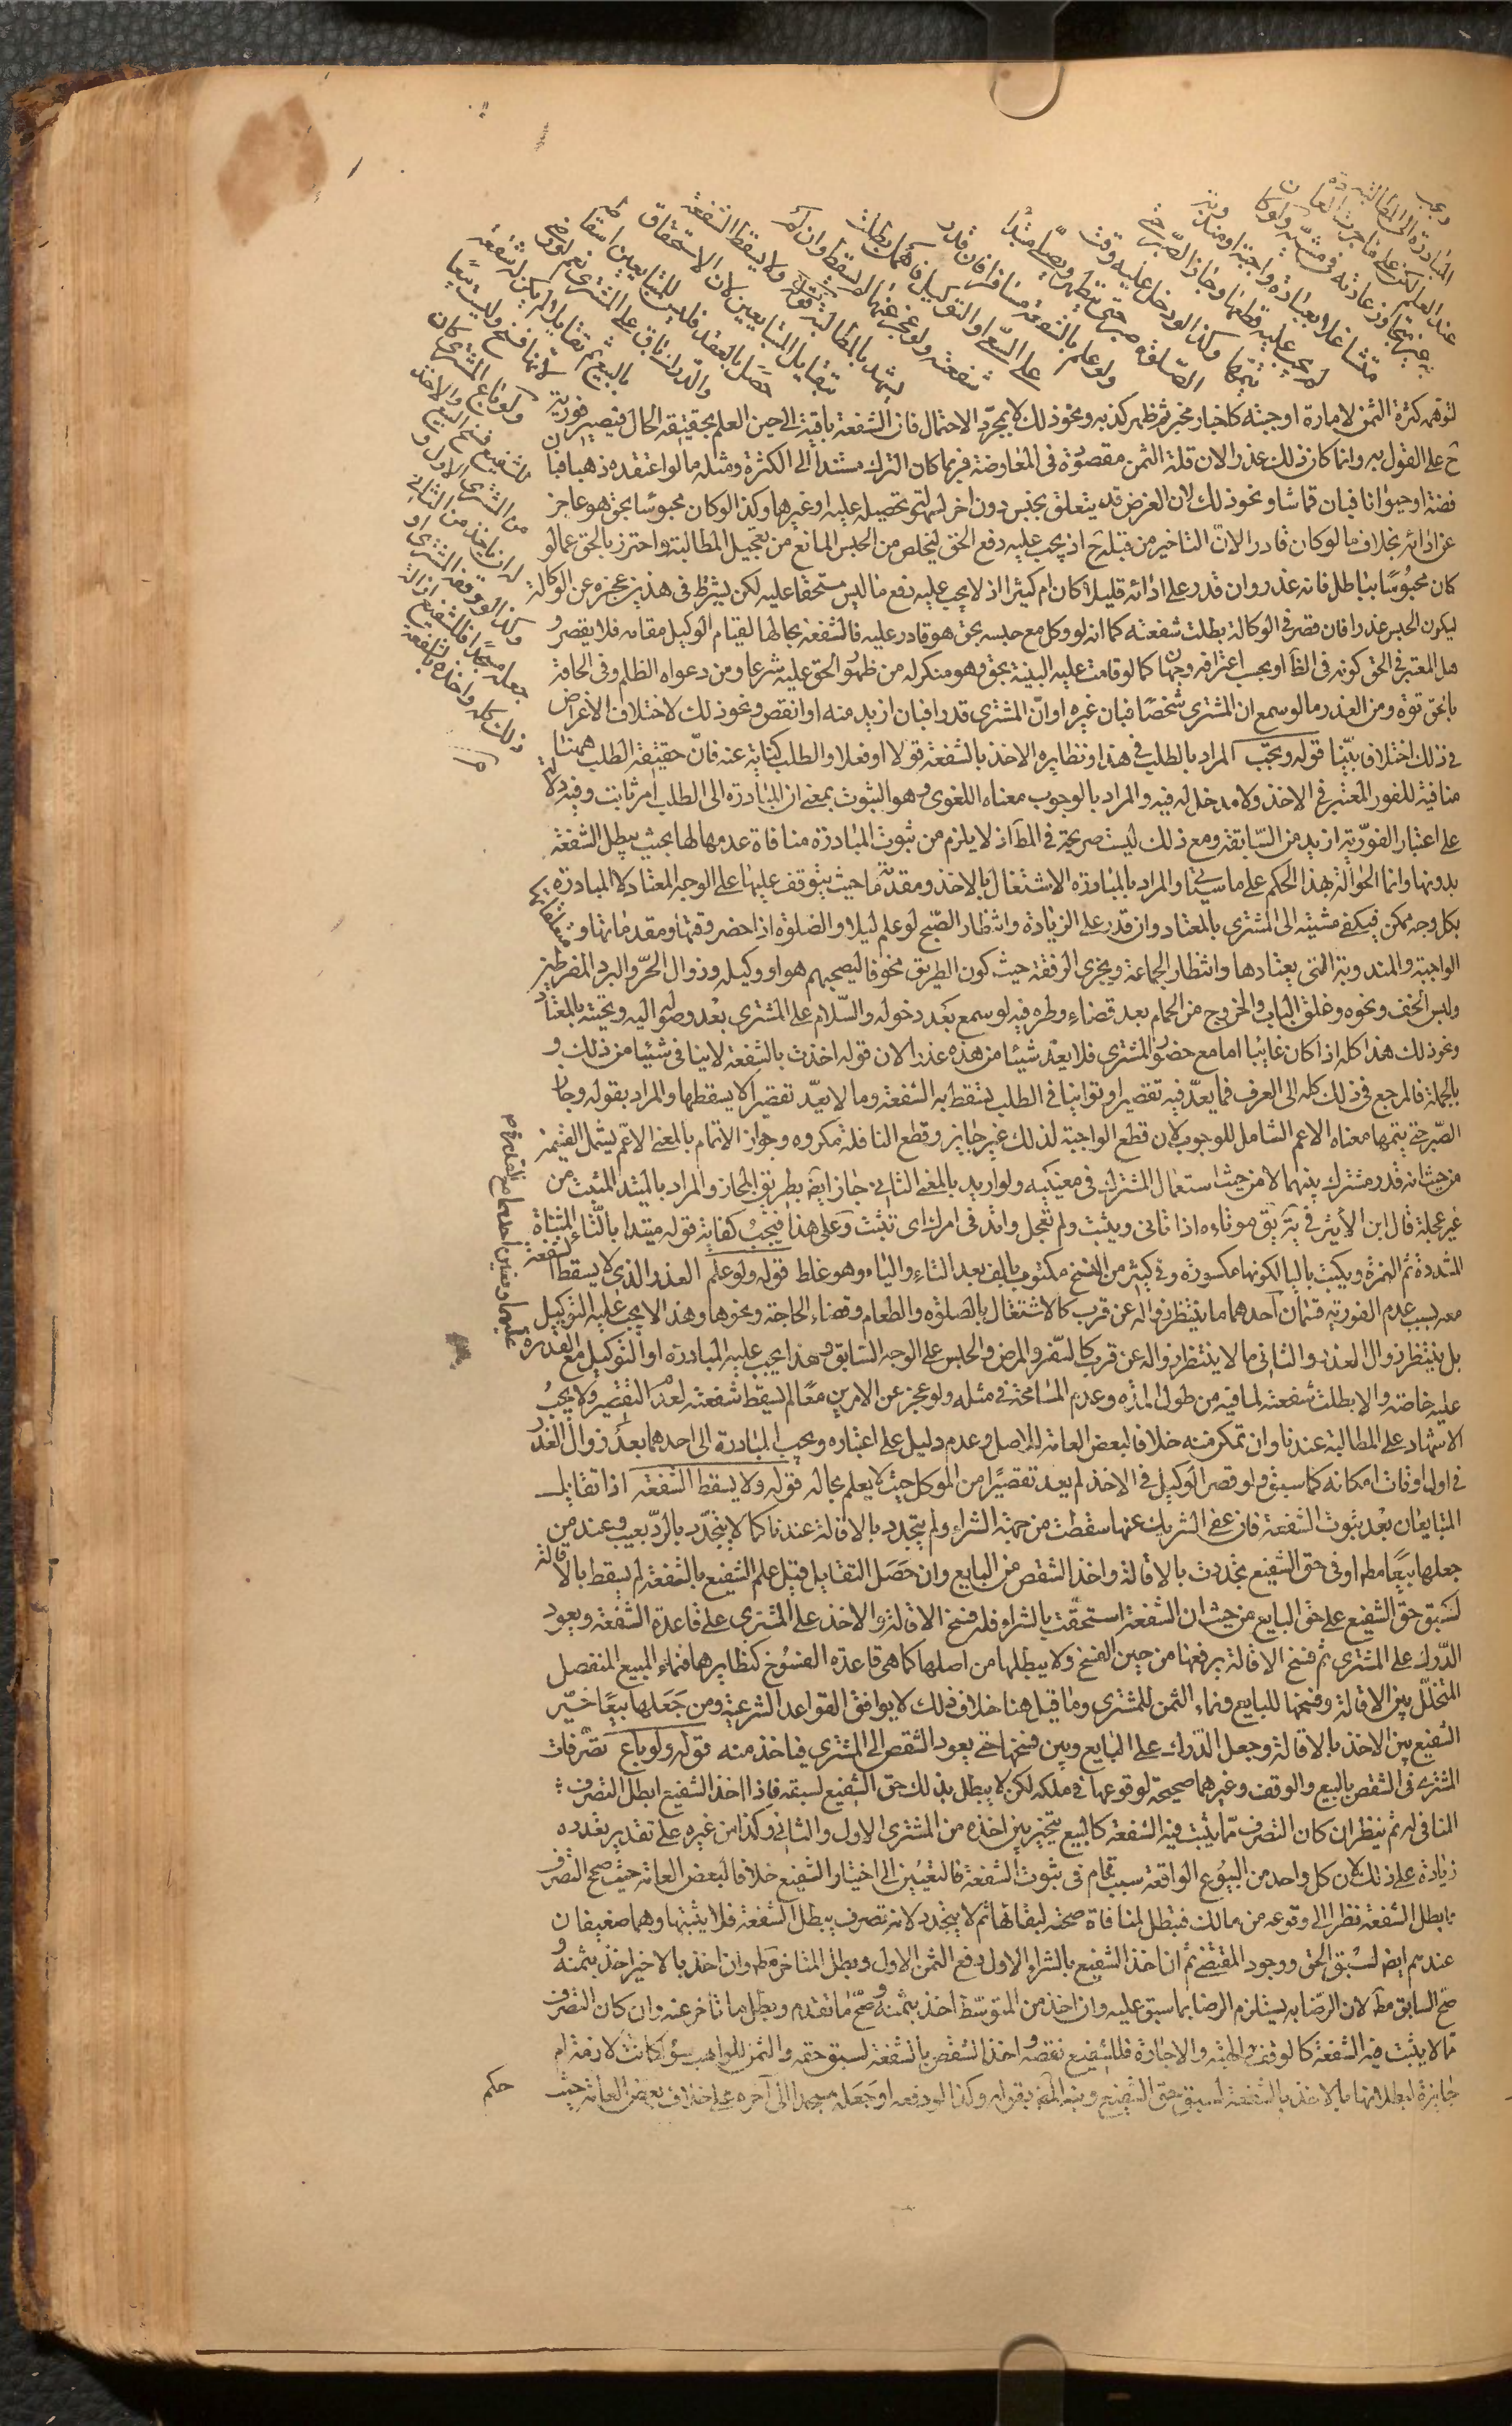 ويجب
المبادرة الى المطالبة
عند العلم لكن على ما جرت العادة
به غير متجاوز عادته في مشيه ولو كان
متشاغلا بعبادة واجبة او مندوبة
لم يجب عليه قطعها وجاز الصبر حتى
يتمها وكذا لو دخل عليه وقت
الصلوة صبر حتى يتطهر ويصلي متئدا
ولو علم بالشفعة مسافرا فان قدر
على السعي او التوكيل فاهمل بطلت
شفعته ولو عجز عنهما لم يسقط وان لم
يشهد بالمطالبة ولا يسقط الشفعة
بتقايل المتبايعين لان الاستحقاق
حصل بالعقد فليس للمتبايعين اسقاطه
والدرك باق على المشتري نعم لو رضي
بالبيع ثم تقايلا لم يكن له شفعة
لانها فسخ وليست بيعا
ولو باع المشتري كان
للشفيع فسخ البيع والاخذ
من المشتري الاول و
له ان ياخذ من الثاني
وكذا لو وقفه المشتري او
جعله مسجدا فللشفيع ازالة
ذلك كله واخذه بالشفعة
لتوهمه كثرة الثمن لامارة اوجبته كاخبار مخبر ثم ظهر كذبه ونحو ذلك لا بمجرد الاحتمال فان الشفعة باقية الى حين العلم بحقيقة الحال فيصير فورية
ح على القول به وانما كان ذلك عذرا لان قلة الثمن مقصودة في المعاوضة فربما كان الترك مستندا الى الكثرة ومثله ما لو اعتقده ذهبا فبان
فضة او حيوانا فبان قماشا ونحو ذلك لان الغرض قد يتعلق بجنس دون اخر لسهولة تحصيله عليه او غيرهما وكذا لو كان محبوسا بحق هو عاجز
عن ادائه بخلاف ما لو كان قادرا لان التاخير من قبله ح اذ يجب عليه دفع الحق ليتخلص من الحبس المانع من تعجيل المطالبة واحترز بالحق عما لو
كان محبوسا بباطل فانه عذر وان قدر على ادائه قليلا كان ام كثيرا اذ لا يجب عليه دفع ما ليس مستحقا عليه لكن يشترط في هذين عجزه عن الوكالة
ليكون الحبس عذرا فان قصر في الوكالة بطلت شفعته كما انه لو وكل مع حبسه بحق هو قادر عليه فالشفعة بحالها لقيام الوكيل مقامه فلا يقصر و
هل المعتبر في الحق كونه في الظ او بحسب اعترافه وجهان كما لو قامت عليه البينة بحق وهو منكر له من ظهور الحق عليه شرعا ومن دعواه الظلم وفي الحاقه
بالحق قوة ومن العذر ما لو سمع ان المشتري شخصا فبان غيره او ان المشتري قدرا فبان ازيد منه او انقص ونحو ذلك لاختلاف الاغراض
في ذلك اختلافا بينا قوله ويجب المراد بالطلب في هذا ونظايره الاخذ بالشفعة قولا او فعلا والطلب كناية عنه فان حقيقة الطلب ههنا
منافية للفور المعتبر في الاخذ ولا مدخل له فيه والمراد بالوجوب معناه اللغوي وهو الثبوت بمعنى ان المبادرة الى الطلب امر ثابت وفيه دلالة
على اعتبار الفورية ازيد من السابقة ومع ذلك ليست صريحة في المط اذ لا يلزم من ثبوت المبادرة منافاة عدمها لها بحيث يبطل الشفعة
بدونها وانما الحوالة بهذا الحكم على ما سياتي والمراد بالمبادرة الاشتغال بالاخذ ومقدمته ما حيث يتوقف عليها على الوجه المعتاد لا المبادرة
بكل وجه ممكن فيكفي مشيته الى المشتري بالمعتاد وان قدر على الزيادة وانتظار الصبح لو علم ليلا والصلوة اذا حضر وقتها ومقدماتها ومتعلقاتها
الواجبة والمندوبة التي يعتادها وانتظار الجماعة ويجزي الرفقة حيث كون الطريق مخوفا ليصحبهم هو او وكيله وزوال الحر والبرد المفرطين
ولبس الخف ونحوه وغلق الباب والخروج من الحمام بعد قضاء وطره فيه لو سمع بعد دخوله والسلام على المشتري بعد وصوله اليه وتحيته بالمعتاد
ونحو ذلك هذا كله اذا كان غايبا اما مع حضور المشتري فلا يعد شيئا من هذه عذرا لان قوله اخذت بالشفعة لا ينافي شيئا من ذلك و
بالجملة فالمرجع في ذلك كله الى العرف فما يعد فيه تقصيرا وتوانيا في الطلب يسقط به الشفعة وما لا يعد تقصيرا لا يسقطها والمراد بقوله وجاز
الصبر حتى يتمها معناه الاعم الشامل للوجوب لان قطع الواجبة لذلك غير جايز وقطع النافلة مكروه وجواز الاتمام بالمعنى الاعم يشمل القيمين
من حيث انه قدر مشترك بينهما لا من حيث استعمال المشترك في معنييه ولو اريد بالمعنى الثاني جاز ايضا بطريق المجاز والمراد بالمتئد المثبت من
غير عجلة قال ابن الاثير في نهايته يق هو تاءد اذا تانى ويتثبت ولم تعجل واتئد في امرك اي تثبت وعلى هذا فيجب كتابة قوله متئدا بالتاء المثناة
المشددة ثم الهمزة ويكتب بالياء لكونها مكسورة وفي كثير من النسخ مكتوب بالف بعد التاء والياء وهو غلط قوله ولو علم العذر الذي لا يسقط الشفعة
معه بسبب عدم الفورية قسمان احدهما ما ينتظر زواله عن قرب كالاشتغال بالصلوة والطعام وقضاء الحاجة ونحوها وهذا لا يجب عليه التوكيل
بل ينتظر زوال العذر والثاني ما لا ينتظر زواله عن قرب كالسفر والمرض والحبس على الوجه السابق وهذا يجب عليه المبادرة او التوكيل مع القدرة
عليهما ومتعين احدهما مع القدرة
عليه خاصة والا بطلت شفعته لما فيه من طول المدة وعدم المسامحة في مثله ولو عجز عن الامرين معا لم يسقط شفعته لعدم التقصير ولا يجب
الاشهاد على المطالبة عندنا وان تمكن منه خلافا لبعض العامة للاصل وعدم دليل على اعتباره ويجب المبادرة الى احدهما بعد زوال العذر
في اول اوقات امكانه كما سبق ولو قصر الوكيل في الاخذ لم يعد تقصيرا من الموكل حيث لا يعلم بحاله قوله ولا يسقط الشفعة اذا تقايل
المتبايعان بعد ثبوت الشفعة فان عفى الشريك عنها سقطت من جهة الشراء ولم يتجدد بالاقالة عندنا كما لا يتجدد بالرد بعيب وعند من
جعلها بيعا مطلقا او في حق الشفيع تجددت بالاقالة واخذ الشقص من البايع وان حصل التقايل قبل علم الشفيع بالشفعة لم يسقط بالاقالة
لسبق حق الشفيع على حق البايع من حيث ان الشفعة استحقت بالشراء فله فسخ الاقالة والاخذ على المشتري على قاعدة الشفعة ويعود
الدرك على المشتري ثم فسخ الاقالة يرفعها من حين الفسخ ولا يبطلها من اصلها كما هي قاعدة الفسوخ كنظايرها فنماء المبيع المنفصل
المتخلل بين الاقالة وفسخها للبايع ونماء الثمن للمشتري وما قيل هنا خلاف ذلك لا يوافق القواعد الشرعية ومن جعلها بيعا خير
الشفيع بين الاخذ بالاقالة وجعل الدرك على البايع وبين فسخها حتى يعود الشقص الى المشتري فياخذ منه قوله ولو باع تصرفات
المشتري في الشقص بالبيع والوقف وغيرهما صحيحة لوقوعها في ملكه لكن لا يبطل بذلك حق الشفيع لسبقه فاذا اخذ الشفيع ابطل التصرف
المنافي له ثم ينظر ان كان التصرف مما يثبت فيه الشفعة كالبيع يتخير بين اخذه من المشتري الاول والثاني وكذا من غيره على تقدير تعدده
زيادة على ذلك لان كل واحد من البيوع الواقعة سبب تام في ثبوت الشفعة فالتعيين الى اختيار الشفيع خلافا لبعض العامة حيث صحح التصرف
وابطل الشفعة نظرا الى وقوعه من مالك فتبطل لمنافاة صحته لبقائها ثم لا يتجدد لانه تصرف يبطل الشفعة فلا يثبتها وهما ضعيفان
عندهم ايضا لسبق الحق ووجود المقتضي ثم ان اخذ الشفيع بالشراء الاول دفع الثمن الاول وبطل المتاخر مط وان اخذ بالاخير اخذ بثمنه و
صح السابق مط لان الرضا به يستلزم الرضا بما سبق عليه وان اخذ من المتوسط اخذ بثمنه وصح ما تقدم وبطل ما تاخر عنه وان كان التصرف
مما لا يثبت فيه الشفعة كالوقف والهبة والاجارة فللشفيع نقضه واخذ الشقص بالشفعة لسبق حقه والثمن للواهب سواء كانت لازمة ام
جايزة لبطلانها بالاخذ بالشفعة لسبق حق الشفيع ونبه المص بقوله وكذا لو وقفه او جعله مسجدا الى آخره على خلاف بعض العامة حيث
حكم